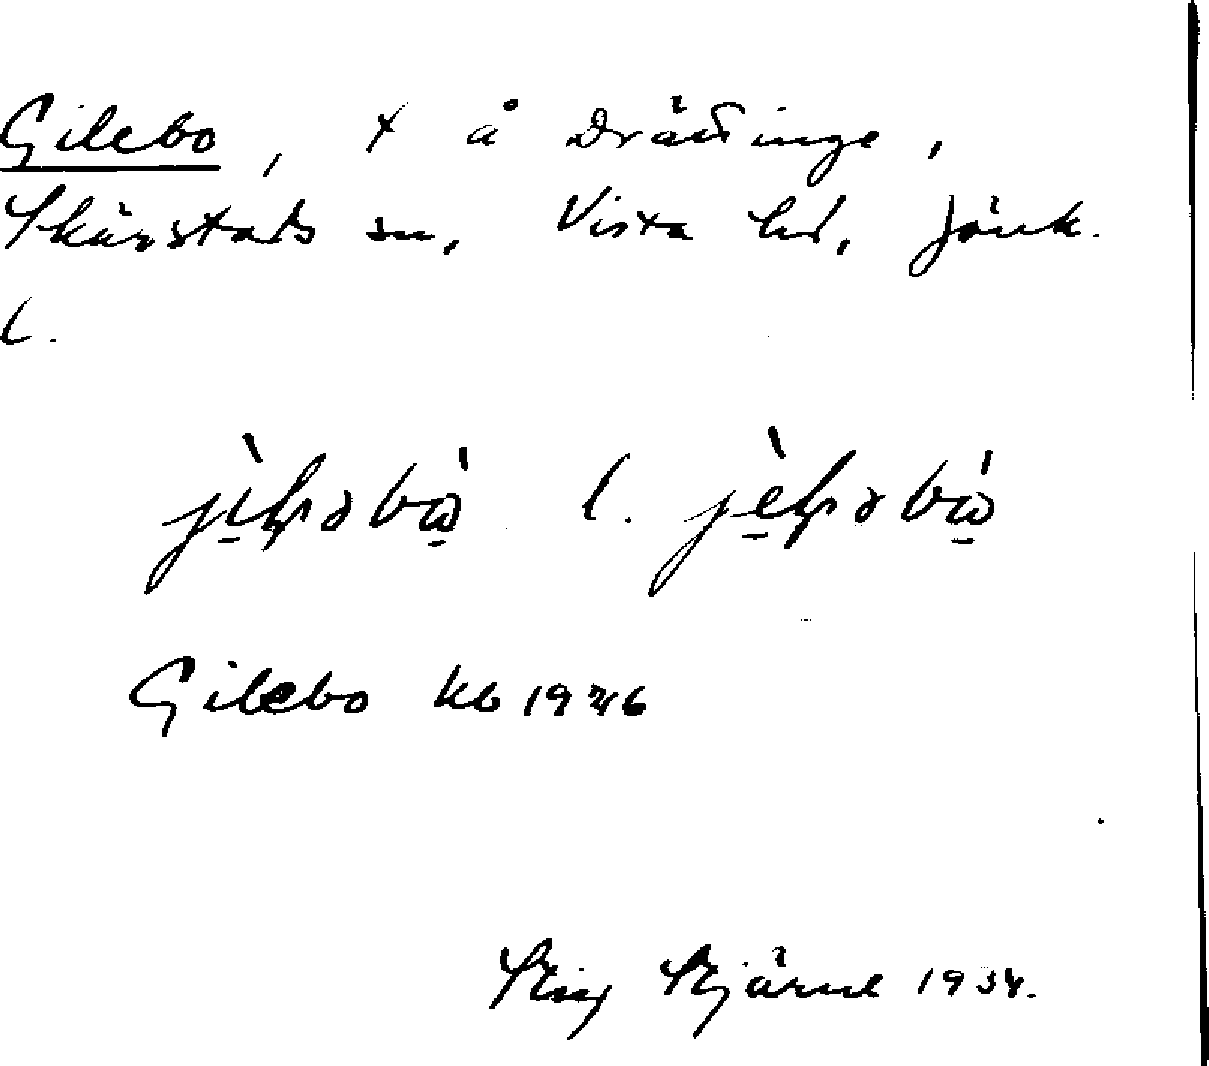 Gilebo, x å Drättinge,
Skärstads sn, Vista hd, Jönk.
l.
l.
Gilebo kb 1946
Stig Stjärne 1934.